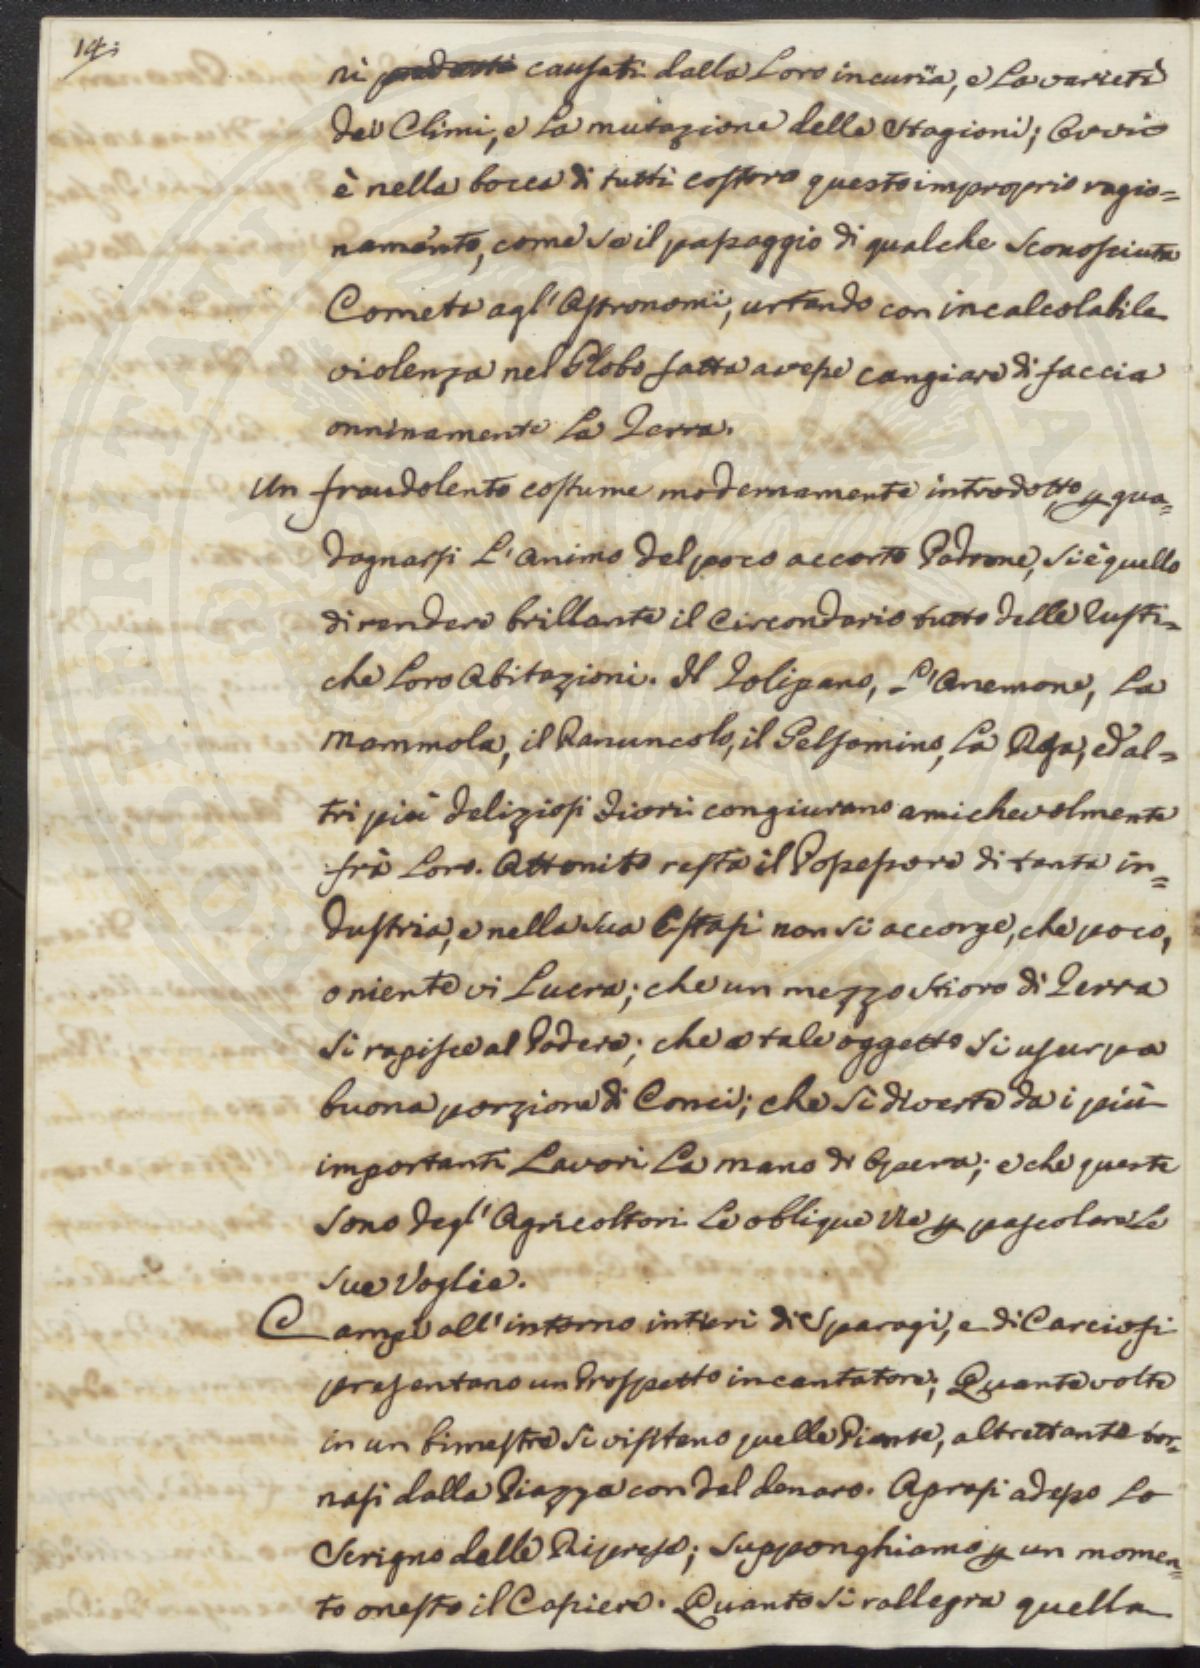 14:
ni prodotti causati dalla Loro incuria, e La varietà
dei Climi, e La mutazione delle Stagioni; Ovvio
è nella bocca di tutti costoro questo improprio ragio=
namento, come se il passaggio di qualche Sconosciuta
Cometa agl' Astronomi, urtando con incalcolabile
violenza nel Globo fatta avesse cangiare di faccia
onninamente La Terra.
Un fraudolento costume modernamente introdotto p gua=
dagnarsi L'animo del poco accorto Padrone, si è quello
di rendere brillante il Circondario tutto delle Rusti=
che Loro Abitazioni. Il Tolipano, L'Anemone, La
Mammola, il Ranuncolo, il Gelsomino, La Rosa, ed al=
tri più deliziosi Fiori congiurano amichevolmente
frà Loro. Attonito resta il Possessore di tanta in=
dustria, e nella sua Estasi non si accorge, che poco,
o niente vi Lucra; che un mezzo Stioro di Terra
Si rapisce al Podere; che a tale oggetto Si usurpa
buona porzione di Conci; che Si diverte da i più
importanti Lavori La mano di Opera; e che queste
sono degl' Agricoltori Le oblique Vie p pascolare Le
sue Voglie.
Campi all' intorno intieri di Sparagi, e di Carciofi
presentano un Prospetto incantatore; Quante volte
in un bimestre Si visitano quelle Piante, altrettante tor=
nasi dalla Piazza con del denaro. Aprasi adesso Lo
Scrigno delle Riprese; Supponghiamo p un momen=
to onesto il Cassiere. Quanto Si rallegra quella